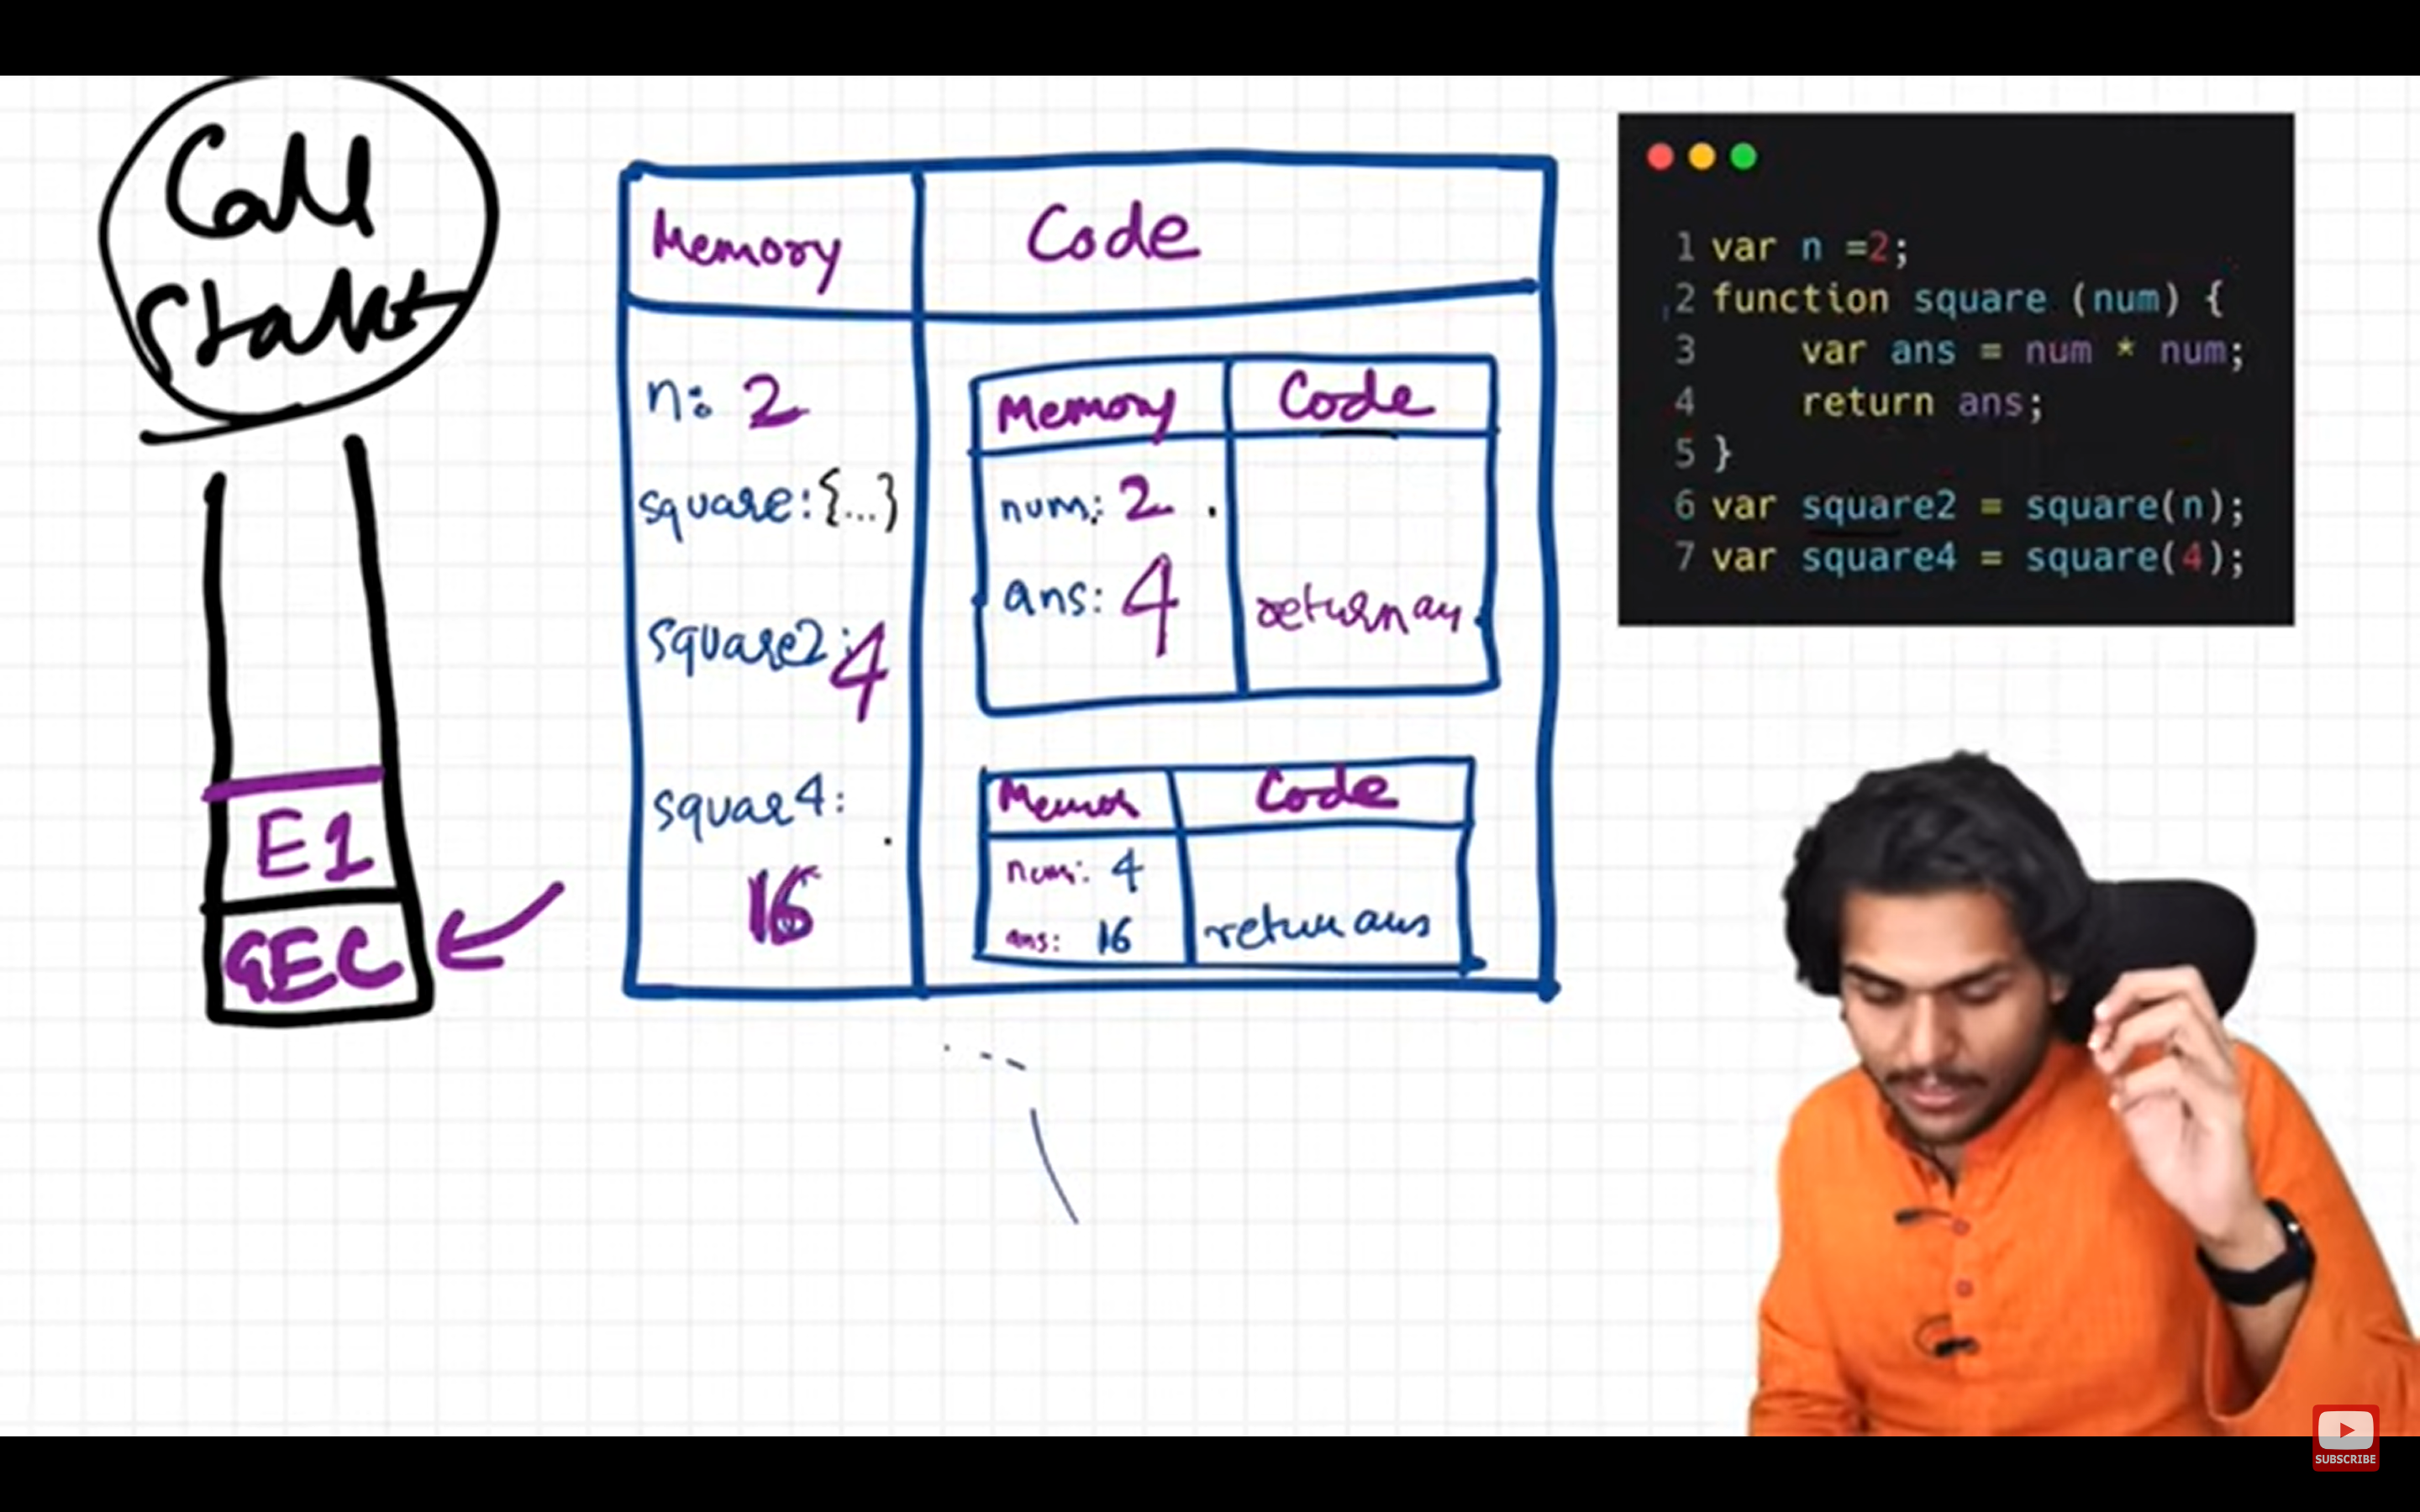 Call
Stack
E1
GEC
Memory
Code
n: 2
square: {...}
square2: 4
squar4:
16
Memory
Code
num: 2
ans: 4
return an
Memor
Code
num: 4
ans: 16
return ans
1 var n =2;
2 function square (num) {
3 var ans = num * num;
4 return ans;
5 }
6 var square2 = square(n);
7 var square4 = square(4);
SUBSCRIBE